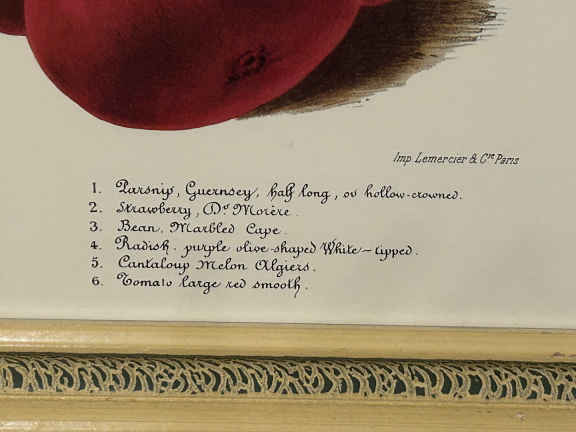 Imp. Lemercier & Cie Paris
1. Parsnip, Guernsey, half long, or hollow-crowned.
2. Strawberry, Dr Morère.
3. Bean, Marbled Cape.
4. Radish, purple olive-shaped White-tipped.
5. Cantaloup Melon Algiers.
6. Tomato large red smooth.